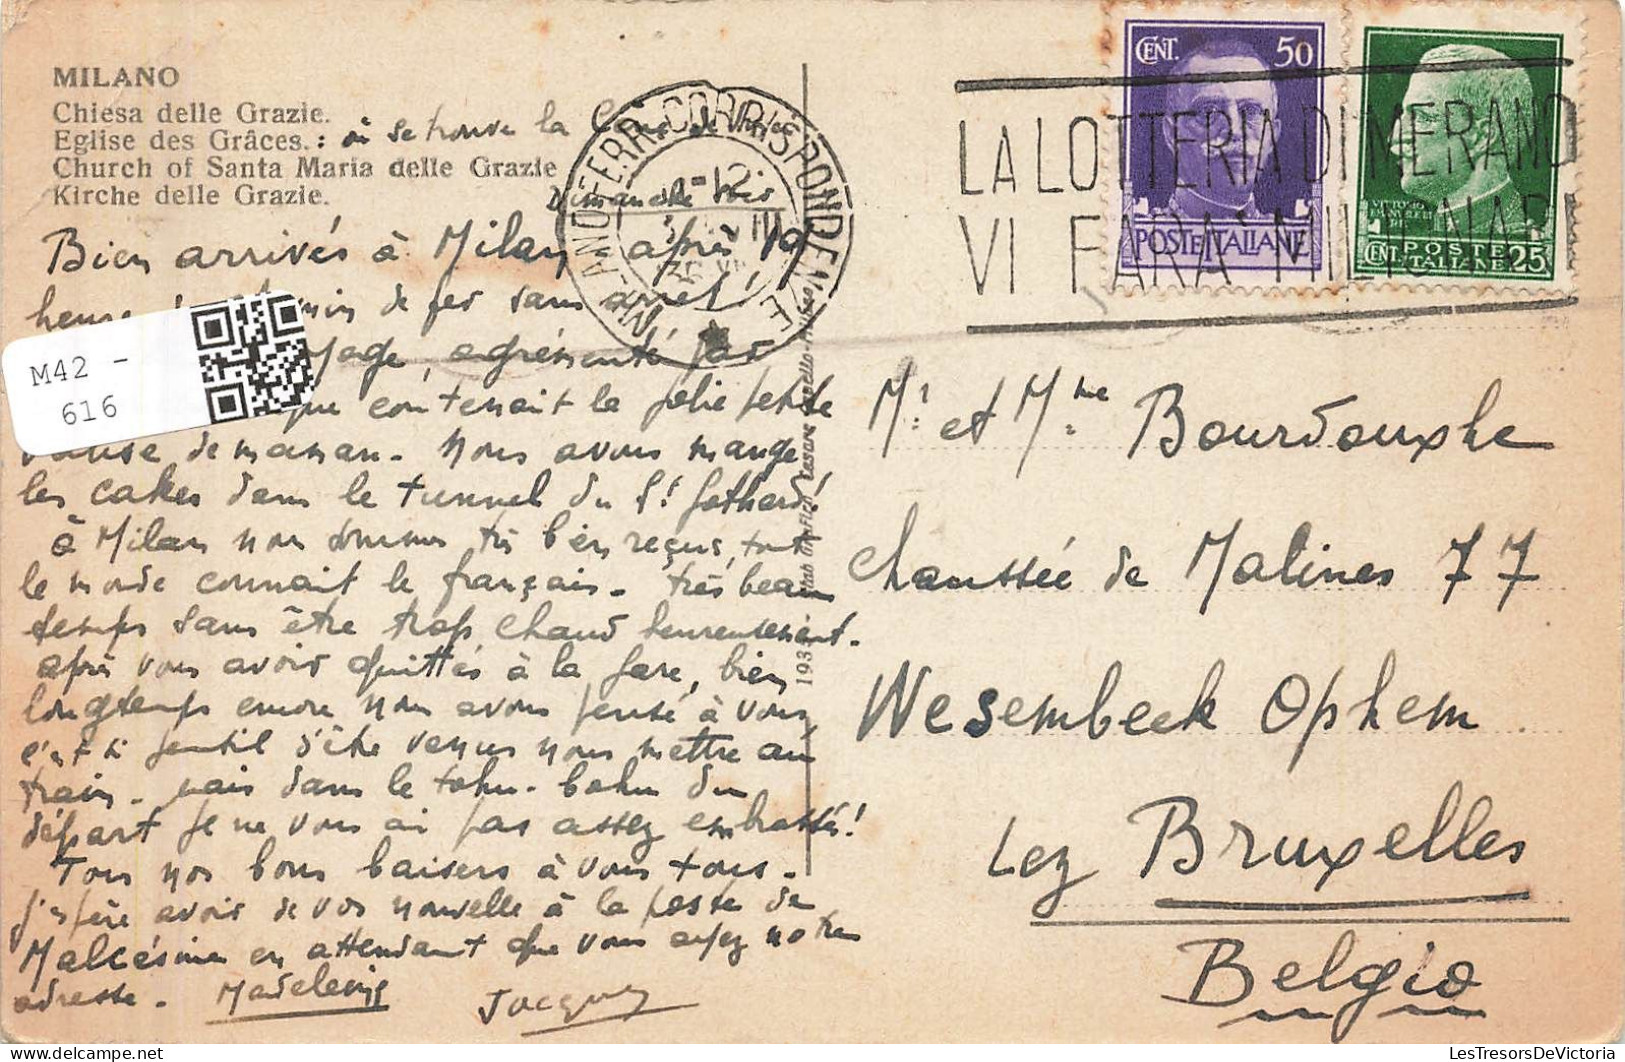 MILANO
Chiesa delle Grazie.
Eglise des Grâces. : où se trouve la
Church of Santa Maria delle Grazie
Kirche delle Grazie.
Dimanche soir
Bien arrivés à Milan, après 19
heures de chemin de fer sans arrêt !
agrémenté par
que contenait la jolie petite
valise de maman. Nous avons mangé
les cakes dans le tunnel du St Gothard!
à Milan nous sommes très bien reçus, tout
le monde connait le français. très beau
temps sans être trop chaud heureusement.
après vous avoir quittés à la gare, bien
longtemps encore nous avons pensé à vous,
c'est si gentil d'être venus nous mettre au
train. mais dans le tohu-bohu du
départ je ne vous ai pas assez embrassés!
Tous nos bons baisers à vous tous.
j'espère avoir de vos nouvelle à la poste de
Malcésine en attendant que vous ayez notre
adresse. Madeleine
Jacques
M42 -
616
CENT. 50
POSTE ITALIANE
VITTORIO
EMANUELE III
DI
POSTE
CENT. ITALIANE 25
LA LOTTERIA DI MERANO
VI FARA' MILIONARI
MILANO FERR. CORRISPONDENZE
Mr. et Mme. Bourdouxhe
Chaussée de Malines 77
Wesembeek Ophem
Lez Bruxelles
Belgio
LesTresorsDeVictoria